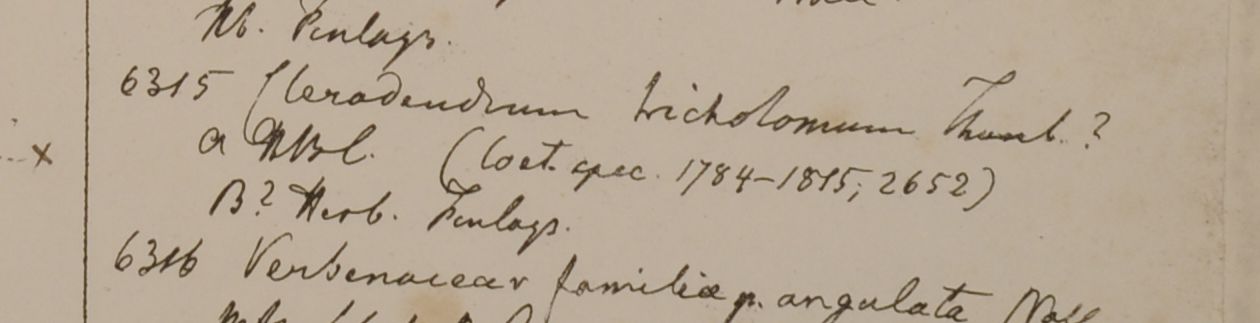 Hb. Finlays.
6315 Clerodendrum tricholomum Thunb. ?
a HBC. (Coct. spec. 1784-1815; 2652)
B? Herb. Finlays.
6316 Verbenacear familiæ p. angulata Wall